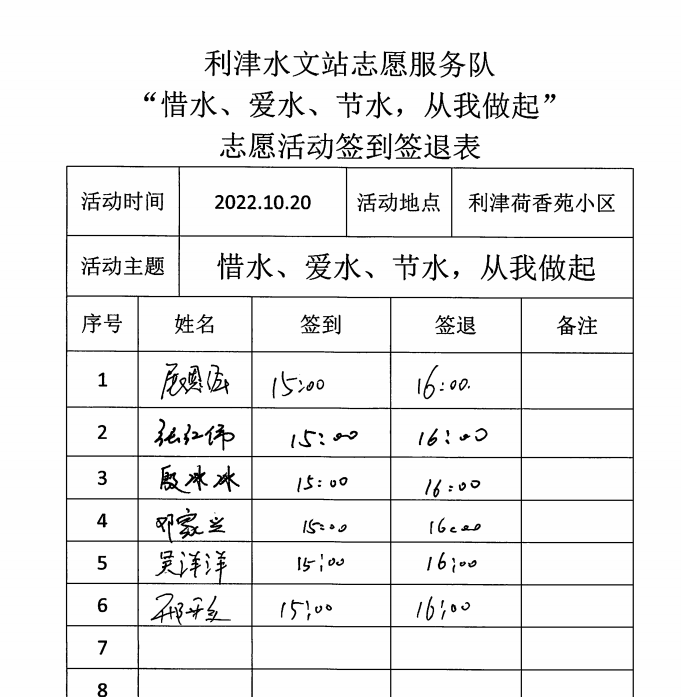 利津水文站志愿服务队
“惜水、爱水、节水，从我做起”
志愿活动签到签退表
活动时间 2022.10.20 活动地点 利津荷香苑小区
活动主题 惜水、爱水、节水，从我做起
序号 姓名 签到 签退 备注
1 15:00 16:00.
2 张红伟 15:00 16:00
3 殷冰冰 15:00 16:00
4 邓家兰 15:00 16:00
5 吴洋洋 15:00 16:00
6 15:00 16:00
7
8